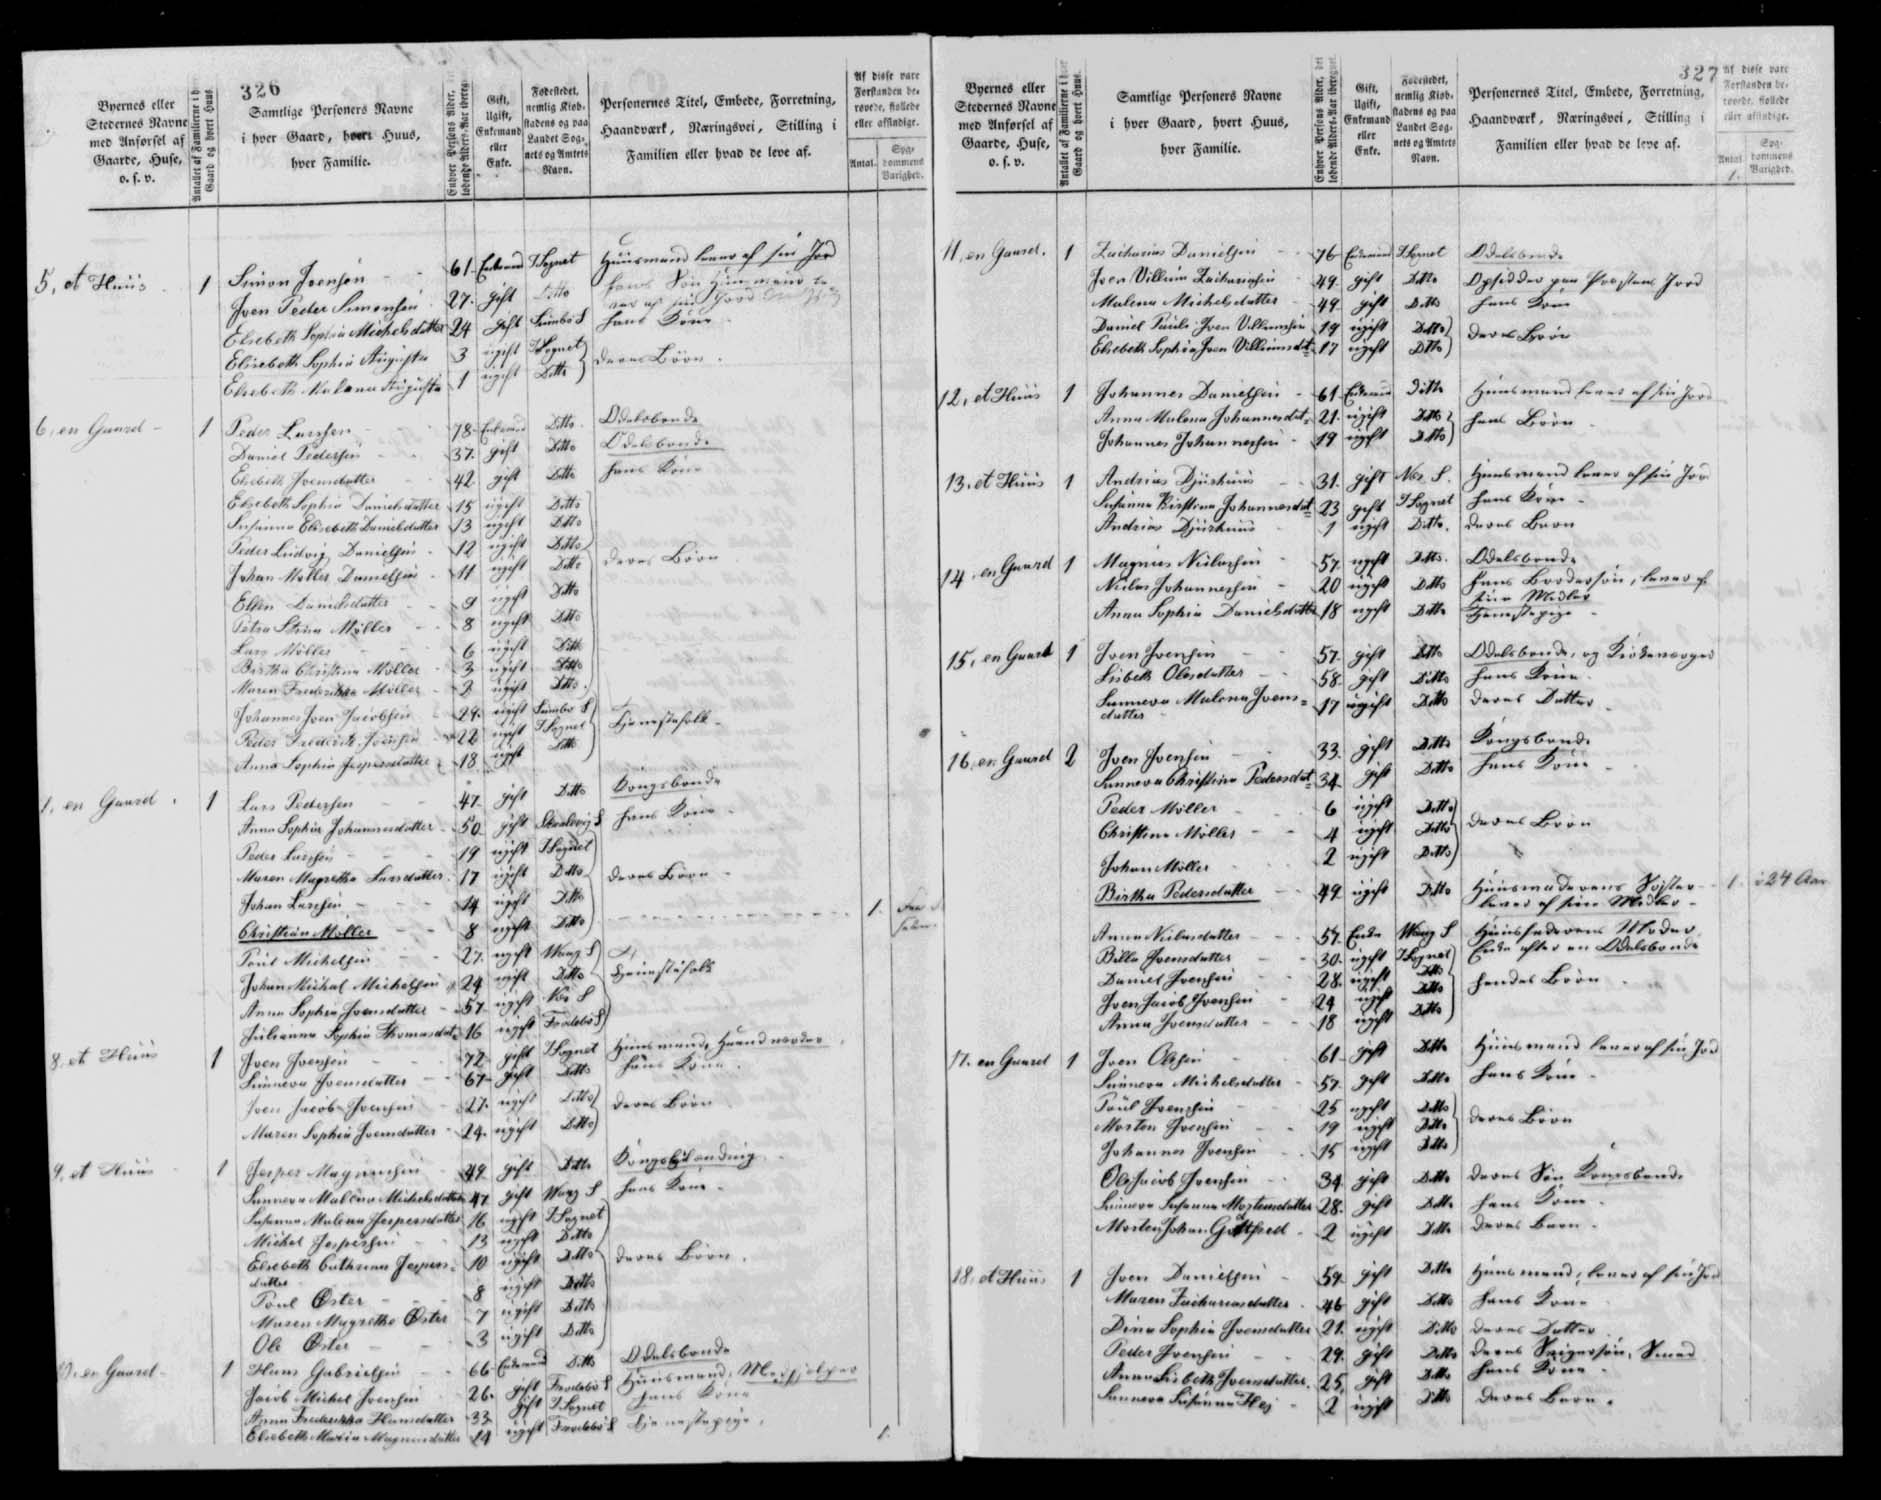 326
Byernes eller Stedernes Navne med Anførsel af Gaarde, Huse, o. s. v.
Antallet af Familierne i hver Gaard og hvert Huus.
Samtlige Personers Navne i hver Gaard, hvert Huus, hver Familie.
Enhver Persons Alder, det løbende Alders-Aar iberegnet.
Gift, Ugift, Enkemand eller Enke.
Fødestedet, nemlig Kiøbstadens og paa Landet Sognets og Amtets Navn.
Personernes Titel, Embede, Forretning, Haandværk, Næringsvei, Stilling i Familien eller hvad de leve af.
Af disse vare Forstanden berøvede, fiollede eller afsindige.
Antal. Sygdommens Varighed.
5, et Huus 1 Simon Joensen 61 Enkemand I Sognet Huusmand lever af sin Jord
Joen Peder Simonsen 27. gift Ditto hans Søn Huusmand
Elsebeth Sophia Michelsdatter 24 gift Sumbø S hans Kone
Elisebeth Sophia Augusta 3 ugift I Sognet deres Børn
Elsebeth Malena Augusta 1 ugift Ditto
6, en Gaard 1 Peder Larssen 78 Enkemand Ditto Odelsbonde
Daniel Pedersen 37. gift Ditto Odelsbonde
Elsebeth Joensdatter 42 gift Ditto hans Kone
Elsebeth Sophia Danielsdatter 15 ugift Ditto
Susanna Elisebeth Danielsdatter 13 ugift Ditto
Peder Ludvig Danielsen 12 ugift Ditto
Johan Møller Danielsen 11 ugift Ditto deres Børn
Ellen Danielsdatter 9 ugift Ditto
Petra Stina Møller 8 ugift Ditto
Lars Møller 6 ugift Ditto
Birtha Christina Møller 3 ugift Ditto
Maren Fredrikka Møller 2 ugift Ditto
Johannes Joen Jacobsen 29. ugift Sumbø S
Peder Frederik Joensen 22 ugift I Sognet Tjenestefolk
Anna Sophia Jespersdatter 18 ugift Ditto
7, en Gaard 1 Lars Pedersen 47 gift Ditto Kongsbonde
Anna Sophia Johannesdatter 50 gift Skvalevig S hans Kone
Peder Larssen 19 ugift I Sognet
Maren Magretha Larsdatter 17 ugift Ditto deres Børn
Johan Larssen 14 ugift Ditto
Christian Møller 8 ugift Ditto 1.
Poul Michelsen 27. ugift Waag S
Johan Michal Michelsen 24 ugift Ditto Tjenestefolk
Anna Sophia Joensdatter 57 ugift Næs S
Julianna Sophia Thomasdat= 16 ugift Frodebø S
8, et Huus 1 Joen Joensen 72 gift I Sognet Huusmand, Haandverker
Sunneva Joensdatter 67 gift Ditto hans Kone
Joen Jacob Joensen 27. ugift Ditto deres Børn
Maren Sophia Joensdatter 24. ugift Ditto
9, et Huus 1 Jesper Magnussen 49 gift Ditto
Sunneva Malena Michelsdatter 47 gift Waag S hans Kone
Susanna Malena Jespersdatter 16 ugift I Sognet
Michel Jespersen 13 ugift Ditto
Elsebeth Cathrina Jespers= 10 ugift Ditto deres Børn
datter
Poul Øster 8 ugift Ditto
Maren Magretha Øster 7 ugift Ditto
Ole Øster 3 ugift Ditto
en Gaard 1 Hans Gabrielsen 66 Enkemand Ditto Odelsbonde
Jacob Michel Joensen 26. gift Frodebø S Huusmand, Medhjelper
Anna Fredrikka Hansdatter 33 gift I Sognet hans Kone
Elsebeth Maria Magnusdatter 24 ugift Frodebø S Tjenestepige
1.
327
Byernes eller Stedernes Navne med Anførsel af Gaarde, Huse, o. s. v.
Antallet af Familierne i hver Gaard og hvert Huus.
Samtlige Personers Navne i hver Gaard, hvert Huus, hver Familie.
Enhver Persons Alder, det løbende Alders-Aar iberegnet.
Gift, Ugift, Enkemand eller Enke.
Fødestedet, nemlig Kiøbstadens og paa Landet Sognets og Amtets Navn.
Personernes Titel, Embede, Forretning, Haandværk, Næringsvei, Stilling i Familien eller hvad de leve af.
Af disse vare Forstanden berøvede, fiollede eller afsindige.
Antal. Sygdommens Varighed.
1.
11, en Gaard. 1 Zacharias Danielsen 76 Enkemand I Sognet Odelsbonde
Joen Villum Zachariassen 49. gift Ditto Opsidder paa Præstens Jord
Malena Michelsdatter 49 gift Ditto hans Kone
Daniel Pauli Joen Villumsen 19 ugift Ditto deres Børn
Elsebeth Sophia Joen Villumsdt= 17 ugift Ditto
12, et Huus 1 Johannes Danielsen 61 Enkemand Ditto Huusmand lever af sin Jord
Anna Malena Johannesdat= 21. ugift Ditto hans Børn
Johannes Johannessen 19 ugift Ditto
13, et Huus 1 Andrias Djurhuus 31. gift Næs S. Huusmand lever af sin Jord
Susanna Kirstina Johannesdat= 23 gift I Sognet hans Kone
Andrias Djurhuus 1 ugift Ditto. deres Barn
14, en Gaard 1 Magnus Nielassen 57. ugift Ditto. Odelsbonde
Nielas Johannessen 20 ugift Ditto hans Brodersøn, lever af
sine Midler
Anna Sophia Danielsdatter 18 ugift Ditto Tjenestepige
15, en Gaard 1 Joen Joensen 57. gift Ditto Odelsbonde, og Kirkeverger
Lisbeth Olesdatter 58. gift Ditto hans Kone
Sunneva Malena Joens= 17 ugift Ditto deres Datter
datter
16, en Gaard 2 Joen Joensen 33. gift Ditto Kongsbonde
Sunneva Christina Pedersdat= 34 gift Ditto hans Kone
Peder Møller 6 ugift Ditto
Christina Møller 4 ugift Ditto deres Børn
Johan Møller 2 ugift Ditto
Birtha Pedersdatter 49 ugift Ditto Huusmoderens Søster 1. i 24 Aar
lever af sine Midler
Anna Nielasdatter 57. Enke Waag S Huusfaderens Moder,
Enke efter en Odelsbonde
Billa Joensdatter 30. ugift I Sognet
Daniel Joensen 28. ugift Ditto hendes Børn
Joen Jacob Joensen 24 ugift Ditto
Anna Joensdatter 18 ugift Ditto
17. en Gaard 1 Joen Olesen 61 gift Ditto Huusmand lever af sin Jord
Sunneva Michelsdatter 57. gift Ditto hans Kone
Poul Joensen 25 ugift Ditto
Morten Joensen 19 ugift Ditto deres Børn
Johannes Joensen 15 ugift Ditto
Ole Jacob Joensen 34 gift Ditto deres Søn Kongsbonde
Sunneva Susanna Mortensdatter 28. gift Ditto hans Kone
Morten Johan Gottfred 2 ugift Ditto deres Barn
18, et Huus 1 Joen Danielsen 59 gift Ditto Huusmand, lever af sin Jord
Maren Zachariasdatter 46 gift Ditto hans Kone
Dina Sophia Joensdatter 21. ugift Ditto deres Datter
Peder Joensen 29. gift Ditto deres Svigersøn, Smed
Anna Lisbeth Joensdatter. 25, gift Ditto hans Kone
Sunneva Susanna Høj 2 ugift Ditto deres Barn.